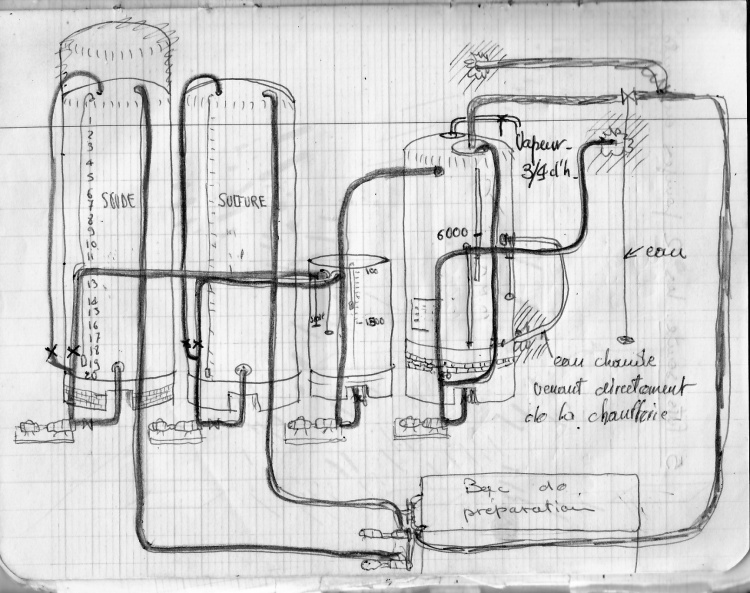 1
2
3
4
5
6
7
8
9
10
11
13
14
15
16
17
18
19
20
SOUDE
SULFURE
100
1500
6000
Vapeur-
3/4 d'h-
eau
eau chaude
venant directement
de la chaufferie
Bac de
préparation